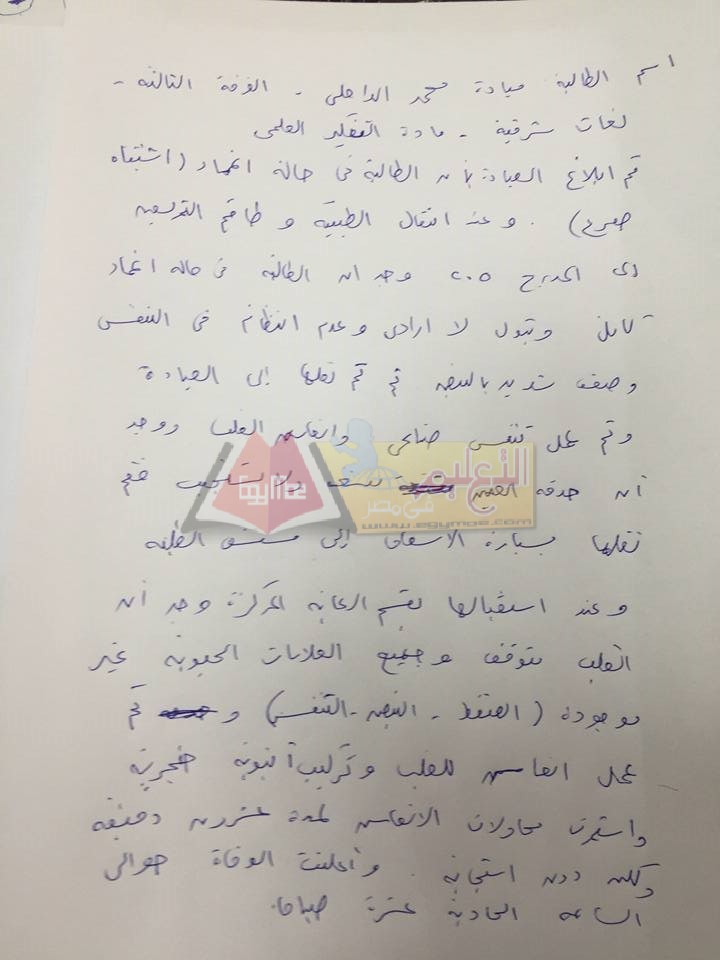 اسم الطالبة ميادة محمد الداخلى - الفرقة الثالثة -
لغات شرقية - مادة التفكير العلمى
تم ابلاغ العيادة بأن الطالبة فى حالة اغماء (اشتباه
صرع) . وعند انتقال الطبيبة و طاقم التمريض
إلى المدرج ٢٠٥ وجد أن الطالبة فى حالة اغماء
كامل وتبول لا ارادى وعدم انتظام فى التنفس
وضعف شديد بالنبض ثم تم نقلها إلى العيادة
وتم عمل تنفس صناعى وانعاش القلب ووجد
أن حدقة العين تتسع ولا تستجيب فتم
التعليم
فى مصر
www.egymoe.com
نقلها بسيارة الاسعاف إلى مستشفى الطلبة
وعند استقبالها بقسم الرعاية المركزة وجد أن
القلب متوقف وجميع العلامات الحيوية غير
موجودة (الضغط - النبض - التنفس) و تم
عمل انعاش للقلب وتركيب أنبوبة حنجرية
واستمرت محاولات الانعاش لمدة عشرون دقيقة
ولكن دون استجابة . وأعلنت الوفاة حوالى
الساعة الحادية عشرة صباحا.